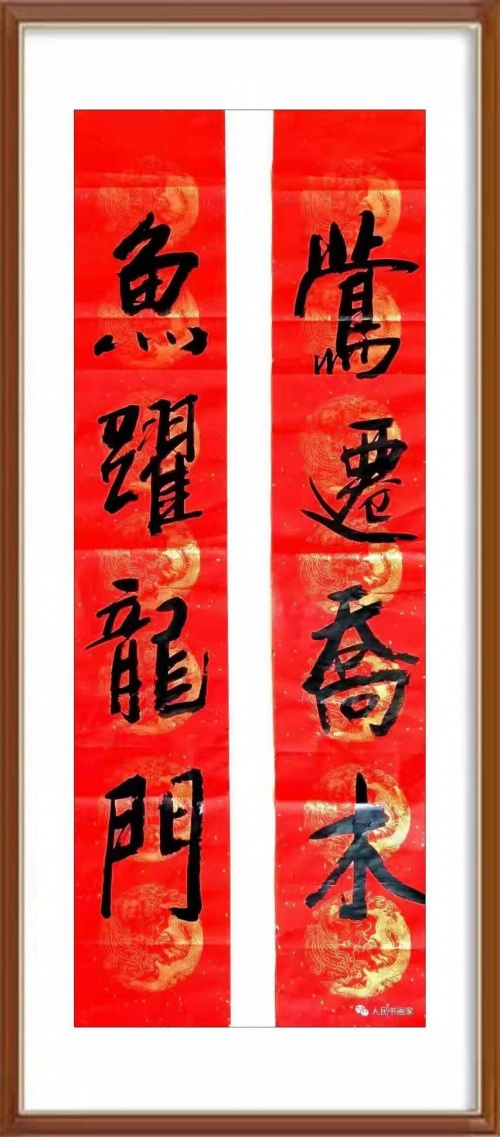 鶯遷喬木
魚躍龍門
人民书画家